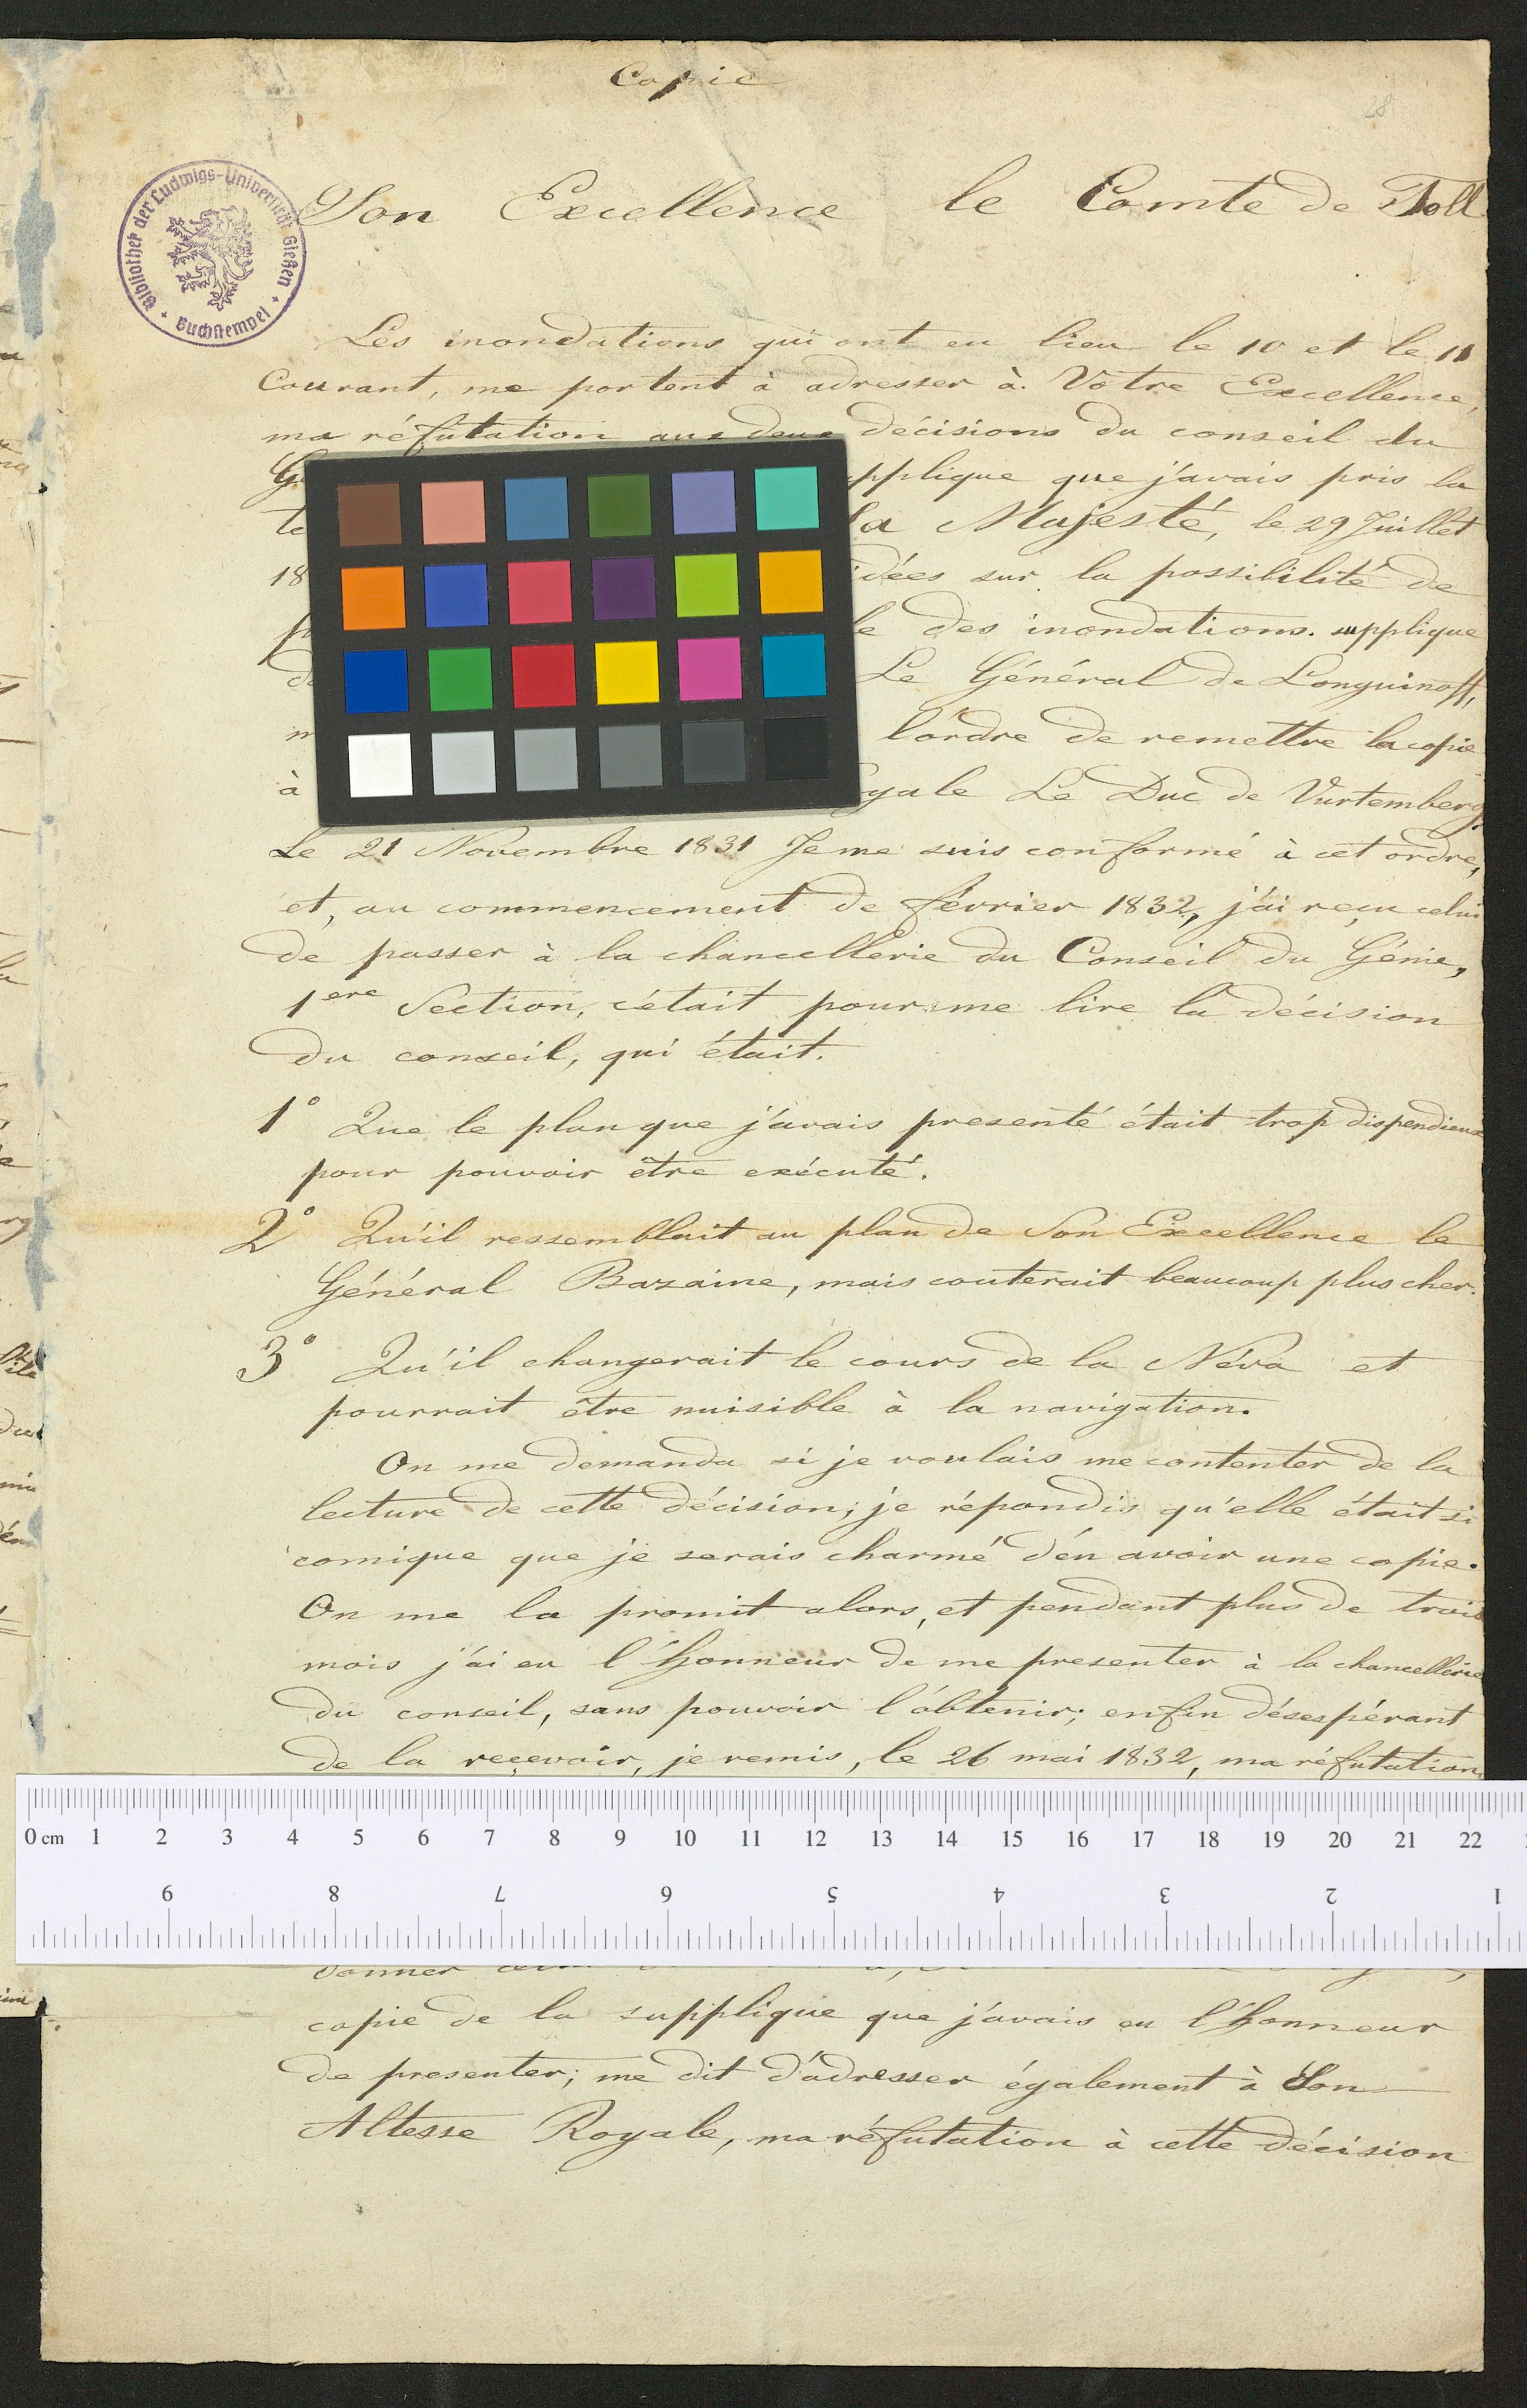 Copie
28
Son Excellence le Comte de Toll
Bibliothek der Ludwigs-Universität Gießen
Buchstempel
Les inondations qui ont eu lieu le 10 et le 11
Courant, me portent à adresser à Votre Excellence,
ma réfutation aux deux décisions du conseil du
pplique que j'avais pris la
Sa Majesté, le 29 Juillet
18 idées sur la possibilité de
le des inondations. supplique
Le Général de Longuinoff,
l'ordre de remettre la copie
à yale Le Duc de Vurtemberg
Le 21 Novembre 1831 Je me suis conformé à cet ordre,
et, au commencement de février 1832, j'ai reçu celui
de passer à la chancellerie du Conseil du Génie,
1ere Section, c'était pour me lire la décision
du conseil, qui était.
1° Que le plan que j'avais presenté était trop dispendieux
pour pouvoir être exécuté.
2° Qu'il ressemblait au plan de Son Excellence le
Général Bazaine, mais couterait beaucoup plus cher.
3° Qu'il changerait le cours de la Néva et
pourrait être nuisible à la navigation.
On me demanda si je voulais me contenter de la
lecture de cette décision; je répondis qu'elle était si
comique que je serais charmé d'en avoir une copie.
On me la promit alors, et pendant plus de trois
mois j'ai eu l'honneur de me presenter à la chancellerie
du conseil, sans pouvoir l'obtenir; enfin désespérant
de la reçevoir, je remis, le 26 mai 1832, ma réfutation
0 cm 1 2 3 4 5 6 7 8 9 10 11 12 13 14 15 16 17 18 19 20 21 22
9 8 7 6 5 4 3 2 1
donner
copie de la supplique que j'avais eu l'honneur
de presenter; me dit d'adresser également à Son
Altesse Royale, ma réfutation à cette décision